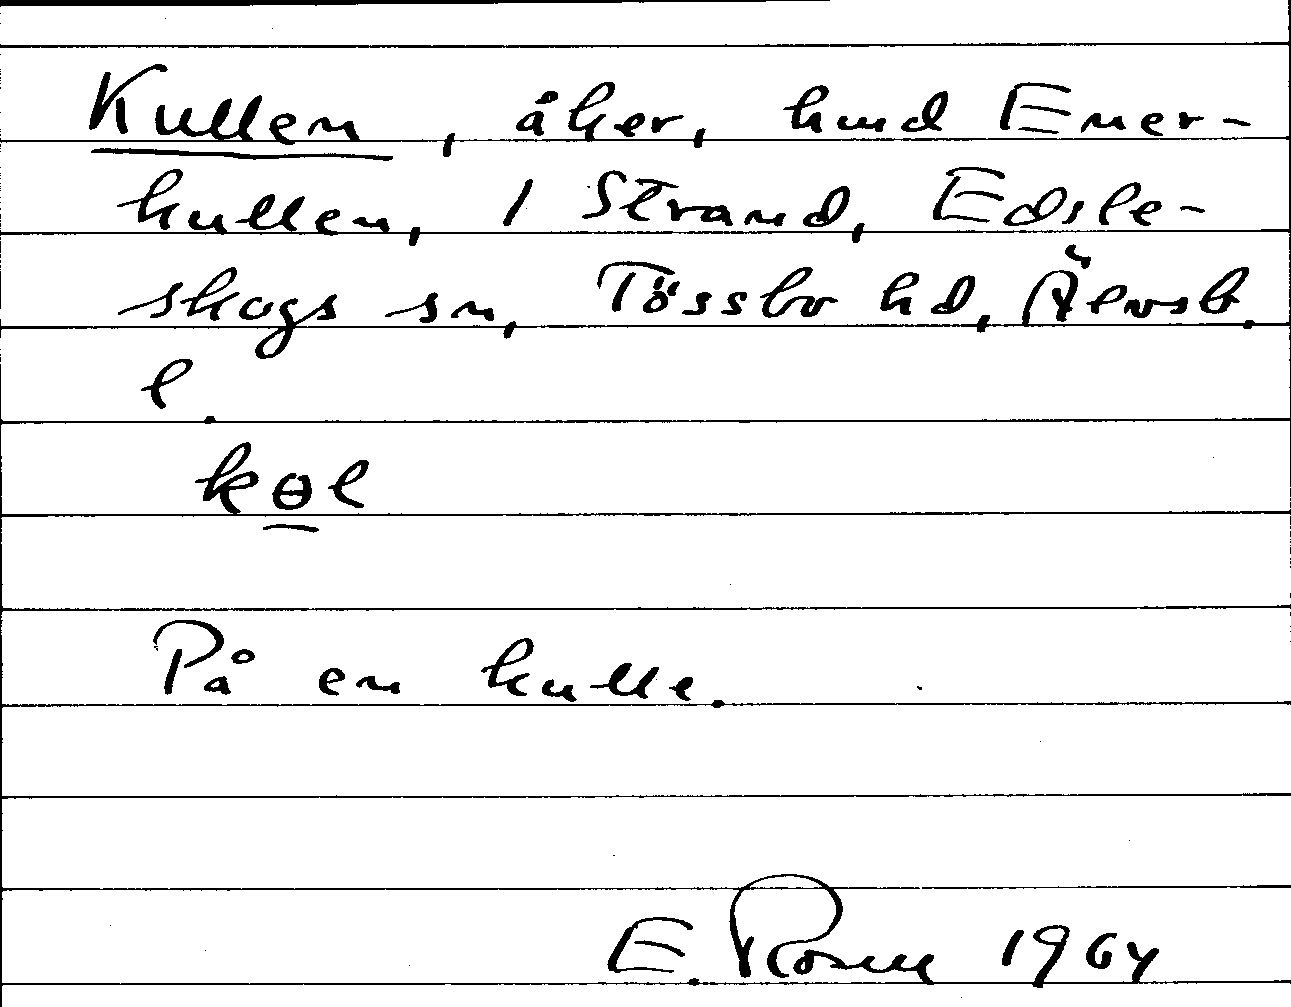 Kullen, åker, hmd Ener-
kullen, i Strand, Edsle-
skogs sn, Tössbo hd, Älvsb.
l.
kɵl
På en kulle.
E. Rosén 1964